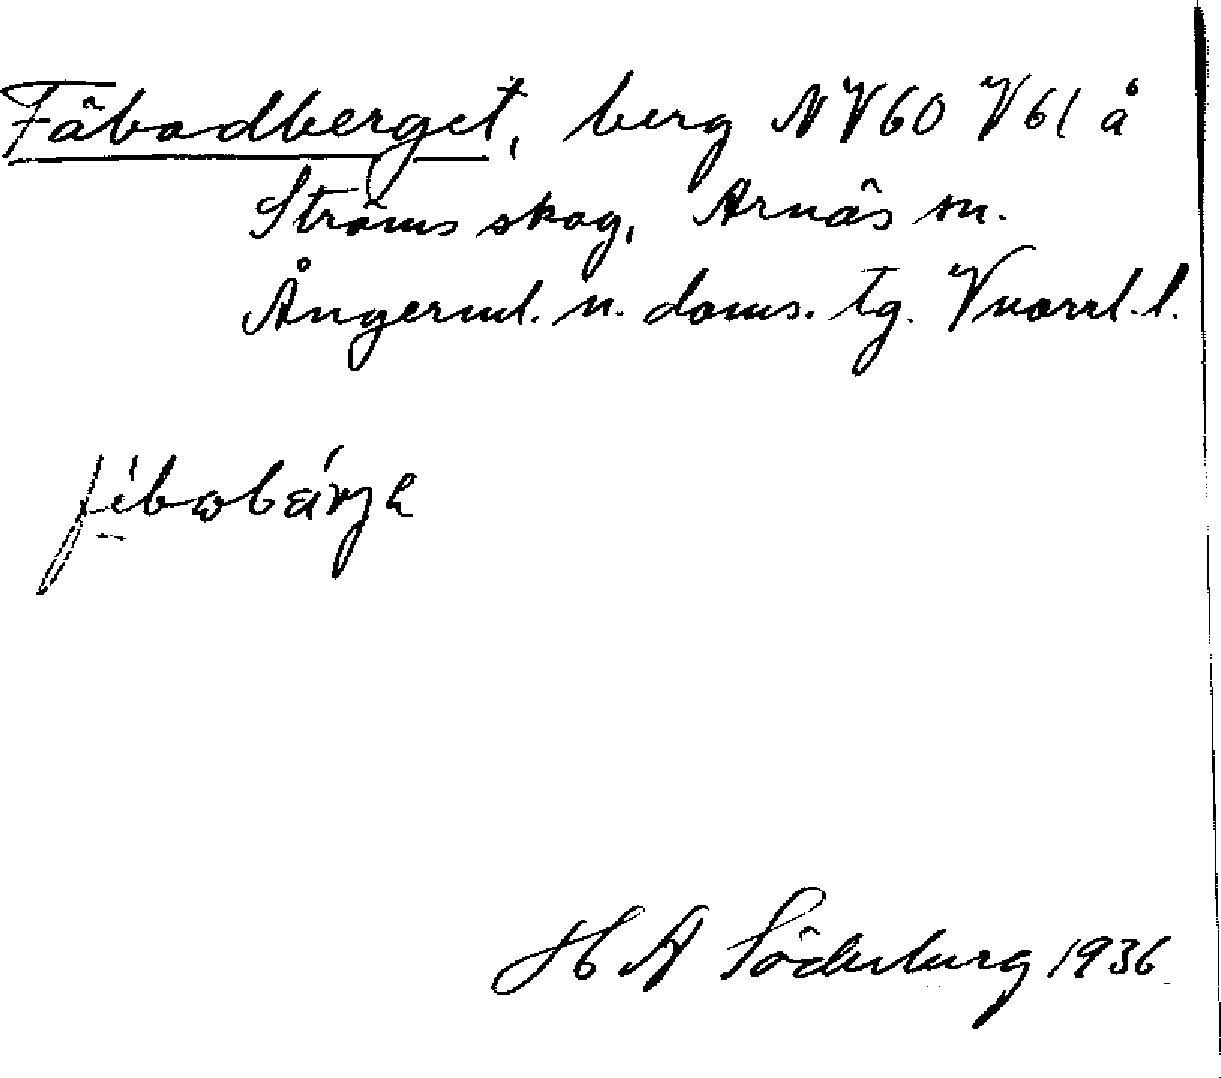 Fäbodberget, berg NV60 V61 å
Ströms skog, Arnäs sn.
Ångerml. n. doms. tg. Vnorrl. l.
H A Söderberg 1936